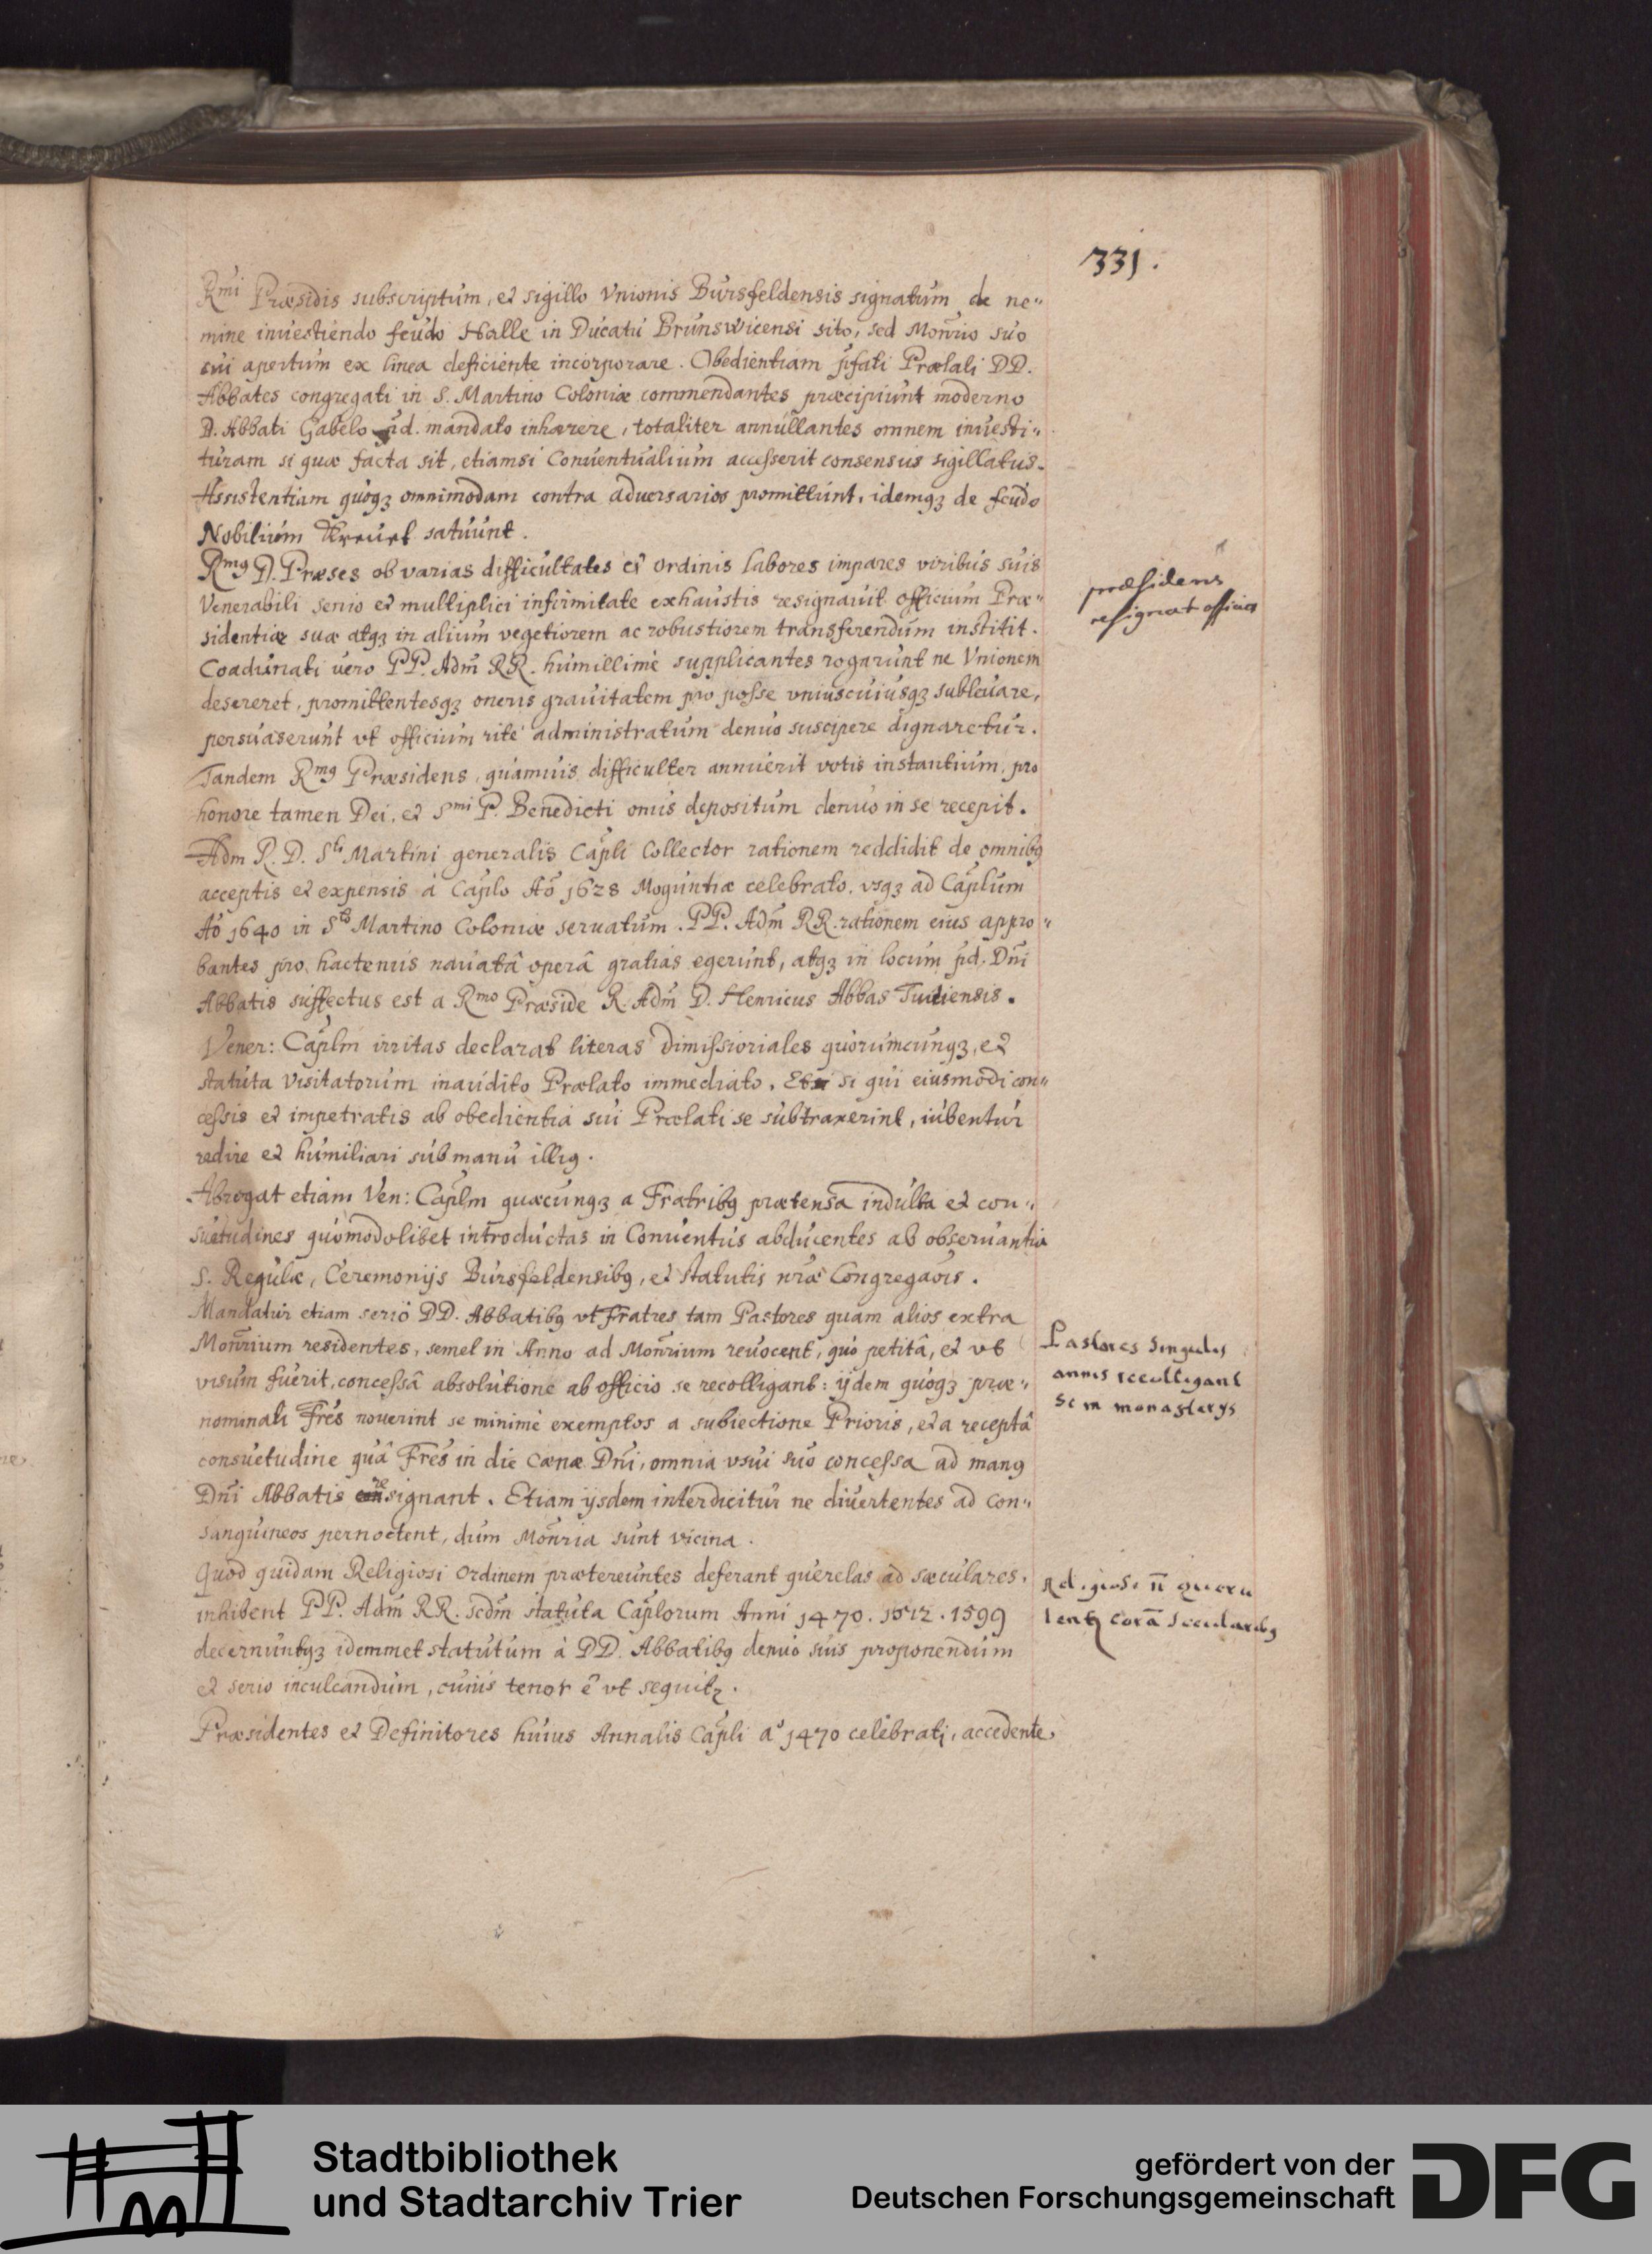 331.
Rmi Præsidis subscriptum, et sigillo Vnionis Bursfeldensis signatum de ne„
mine inuestiendo feudo Halle in Ducatu Brunswicensi sito, sed Monrio suo
cui apertum ex linea deficiente incorporare. Obedientiam pfati Prælati DD.
Abbates congregati in S. Martino Coloniæ commendantes præcipiunt moderno
D. Abbati Gabelo pd. mandato inhærere, totaliter annullantes omnem inuesti„
turam si quæ facta sit, etiamsi Conuentualium accesserit consensus sigillatus.
Assistentiam quoqz omnimodam contra aduersarios promittunt, idemqz de feudo
Nobilium satuunt.
Rmg D. Præses ob varias difficultates et ordinis labores impares viribus suis
Venerabili senio et multiplici infirmitate exhaustis resignauit officium Præ„
sidentiæ suæ atqz in alium vegetiorem ac robustiorem transferendum institit.
Coadunati vero PP. Adm RR. humillimè supplicantes rogarunt ne Vnionem
desereret, promittentesqz oneris grauitatem pro posse vniuscuiusqz subleuare,
persuaserunt vt officium ritè administratum denuo suscipere dignaretur.
Tandem Rmg Præsidens, quamuis difficulter annuerit votis instantium, pro
honore tamen Dei, et Smi P. Benedicti onus depositum denuo in se recepit.
Adm R. D. Sti Martini generalis Capli Collector rationem reddidit de omnibg
acceptis et expensis à Caplo Aõ 1628 Moguntiæ celebrato, vsqz ad Caplum
Aõ 1640 in Sto Martino Coloniæ seruatum. PP. Adm RR. rationem eius appro„
bantes pro hactenus nauatâ operâ gratias egerunt, atqz in locum pd. Dñi
Abbatis suffectus est a Rmo Præside R. Adm D. Henricus Abbas Tuitiensis.
Vener: Caplm irritas declarat literas dimissioriales quorumcunqz, et
statuta Visitatorum inaudito Prælato immediato. Et si qui eiusmodi con„
cessis et impetratis ab obedientia sui Prælati se subtraxerint, iubentur
redire et humiliari sub manu illig.
Abrogat etiam Ven: Caplm quæcunqz a Fratribg prætensa indulta et con„
suetudines quomodolibet introductas in Conuentus abducentes ab obseruantia
S. Regulæ, Ceremonijs Bursfeldensibg, et statutis nræ Congregaõis.
Mandatur etiam seriò DD. Abbatibg vt Fratres tam Pastores quam alios extra
Monrium residentes, semel in Anno ad Monrium reuocent, quò petitâ, et vt
visum fuerit, concessâ absolutione ab officio se recolligant: ijdem quoqz præ„
nominati Frès nouerint se minimè exemptos a subiectione Prioris, et a receptâ
consuetudine quâ Frès in die cœnæ Dñi, omnia vsui suo concessa ad mang
Dñi Abbatis resignant. Etiam ijsdem interdicitur ne diuertentes ad con„
sanguineos pernoctent, dum Monria sunt vicina.
Quod quidam Religiosi Ordinem prætereuntes deferant querelas ad sæculares,
inhibent PP. Adm RR. scdm statuta Caplorum Anni 1470. 1512. 1599
decernuntqz idemmet statutum à DD. Abbatibg denuo suis proponendum
et serio inculcandum, cuius tenor ẽ vt sequitr.
Præsidentes et Definitores huius Annalis Capli aº 1470 celebrati, accedente
præsidens
resignat officia
Pastores singulis
annis recolligant
se in monasterijs
Religiosi ñ queru
lentr corã secularibg
Stadtbibliothek
und Stadtarchiv Trier
gefördert von der
Deutschen Forschungsgemeinschaft
DFG